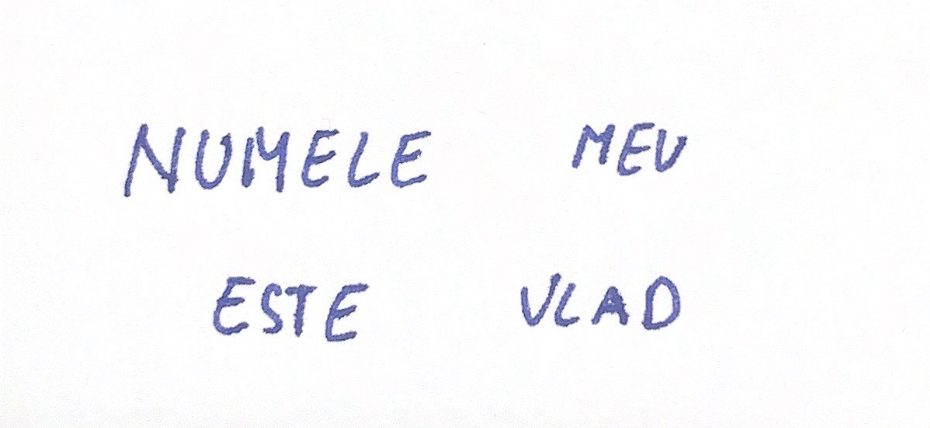 NUMELE MEU
ESTE VLAD